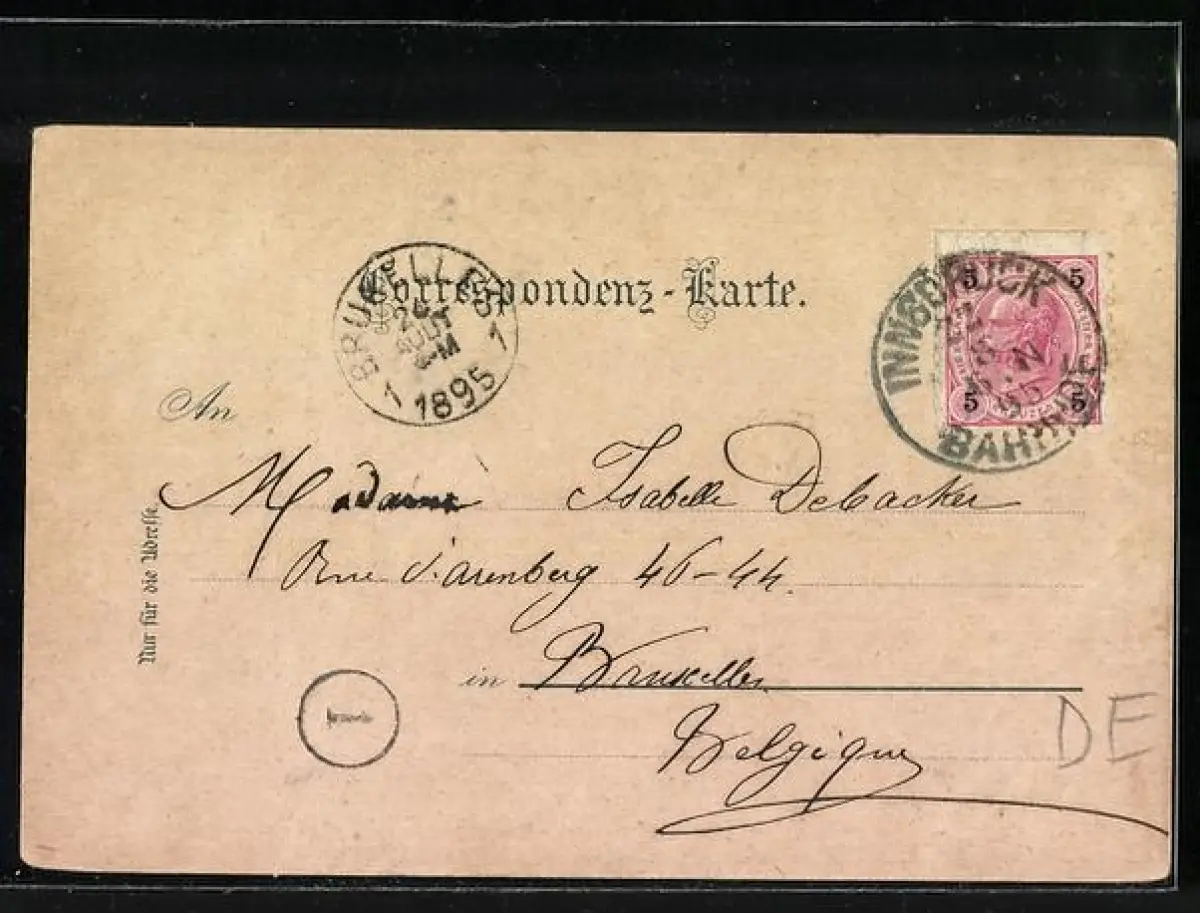 Correspondenz-Karte.
BRUXELLES
AOUT
1 1895 1
INNSBRUCK
BAHNHOF
5 5
5 5
An
Madame Isabelle Debacker
Rue d'arenberg 46-44.
in Bruxelles
Belgique
Nur für die Adresse.
1
DE